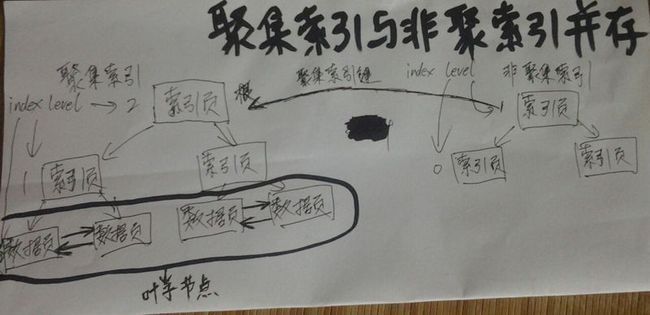 聚集索引与非聚索引并存
聚集索引
index level → 2
索引页
根
聚集索引键
index level
非聚集索引
1
索引页
索引页
索引页
0
索引页
索引页
数据页
数据页
数据页
数据页
叶子节点